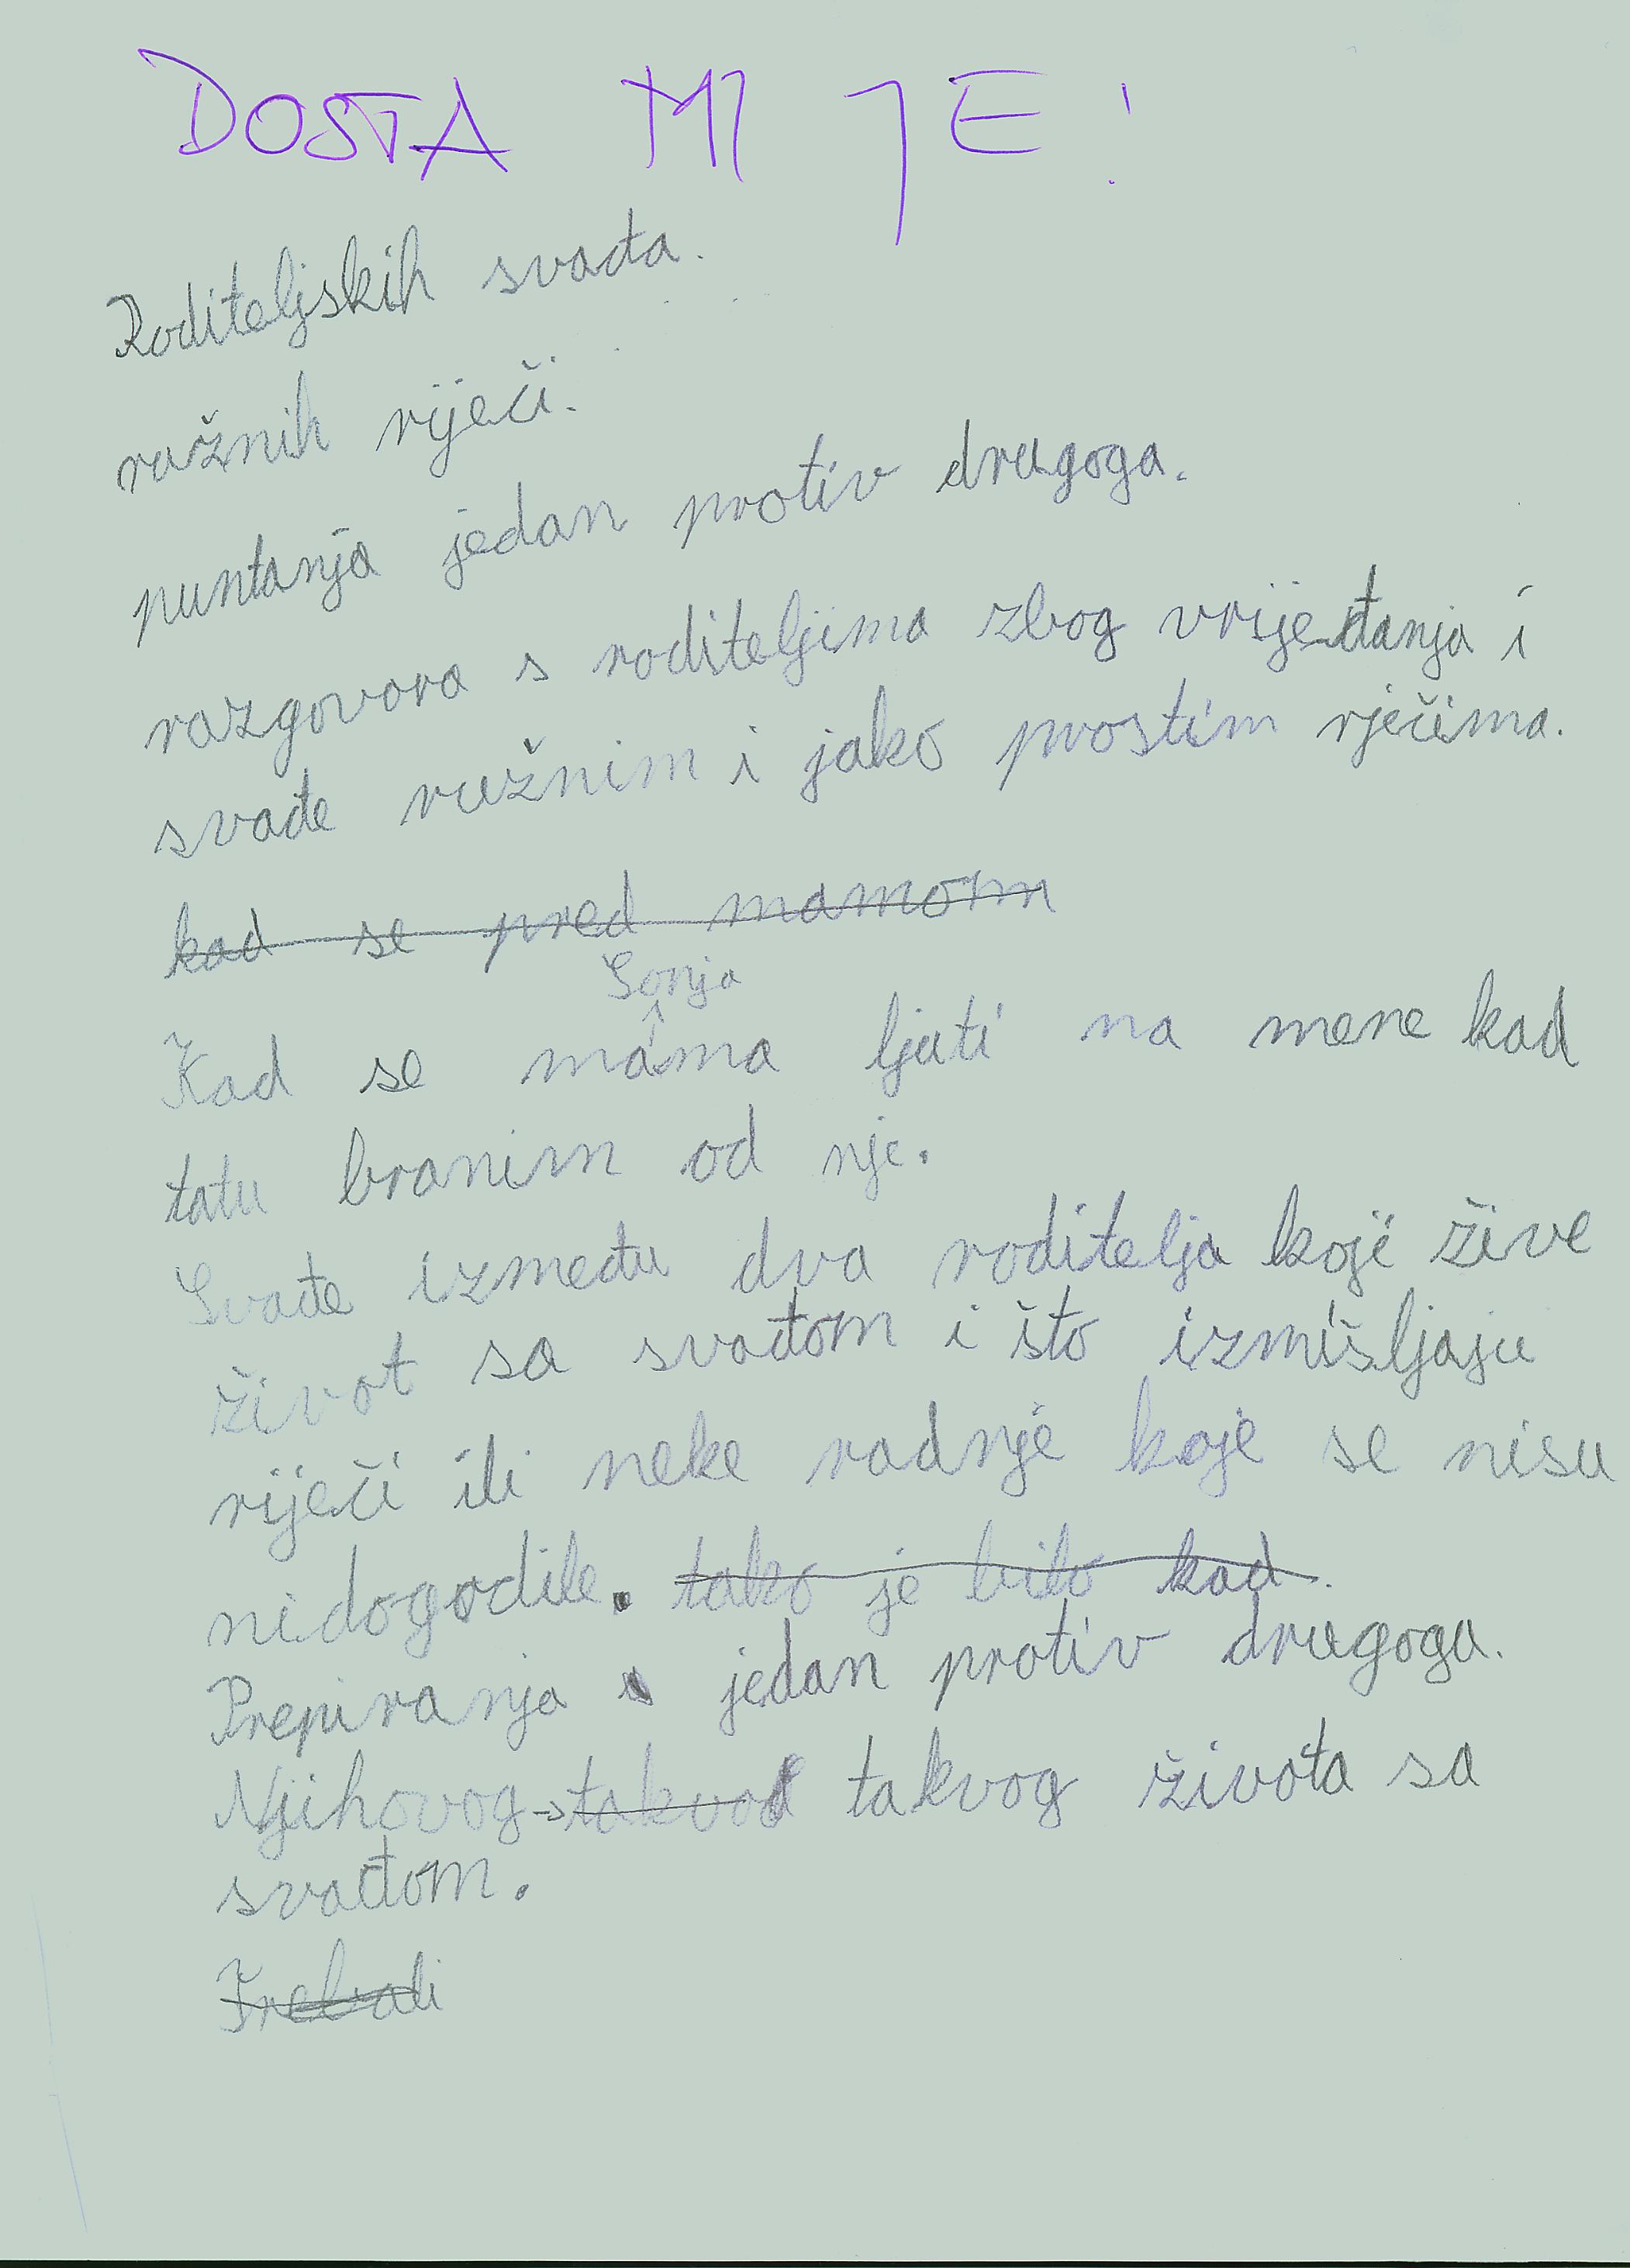 DOSTA MI JE!
Roditeljskih svađa.
ružnih riječi.
puntanja jedan protiv drugoga.
razgovora s roditeljima zbog vrijeđanja i
svađe ružnim i jako prostim rječima.
kad se pred mamom
Sonja
Kad se mama ljuti na mene kad
tatu branim od nje.
Svađe između dva roditelja koji žive
život sa svađom i što izmišljaju
riječi ili neke radnje koje se nisu
ni dogodile. tako je bilo kad.
Prepiranja jedan protiv drugoga.
Njihovog takvog života sa
svađom.
Trebali